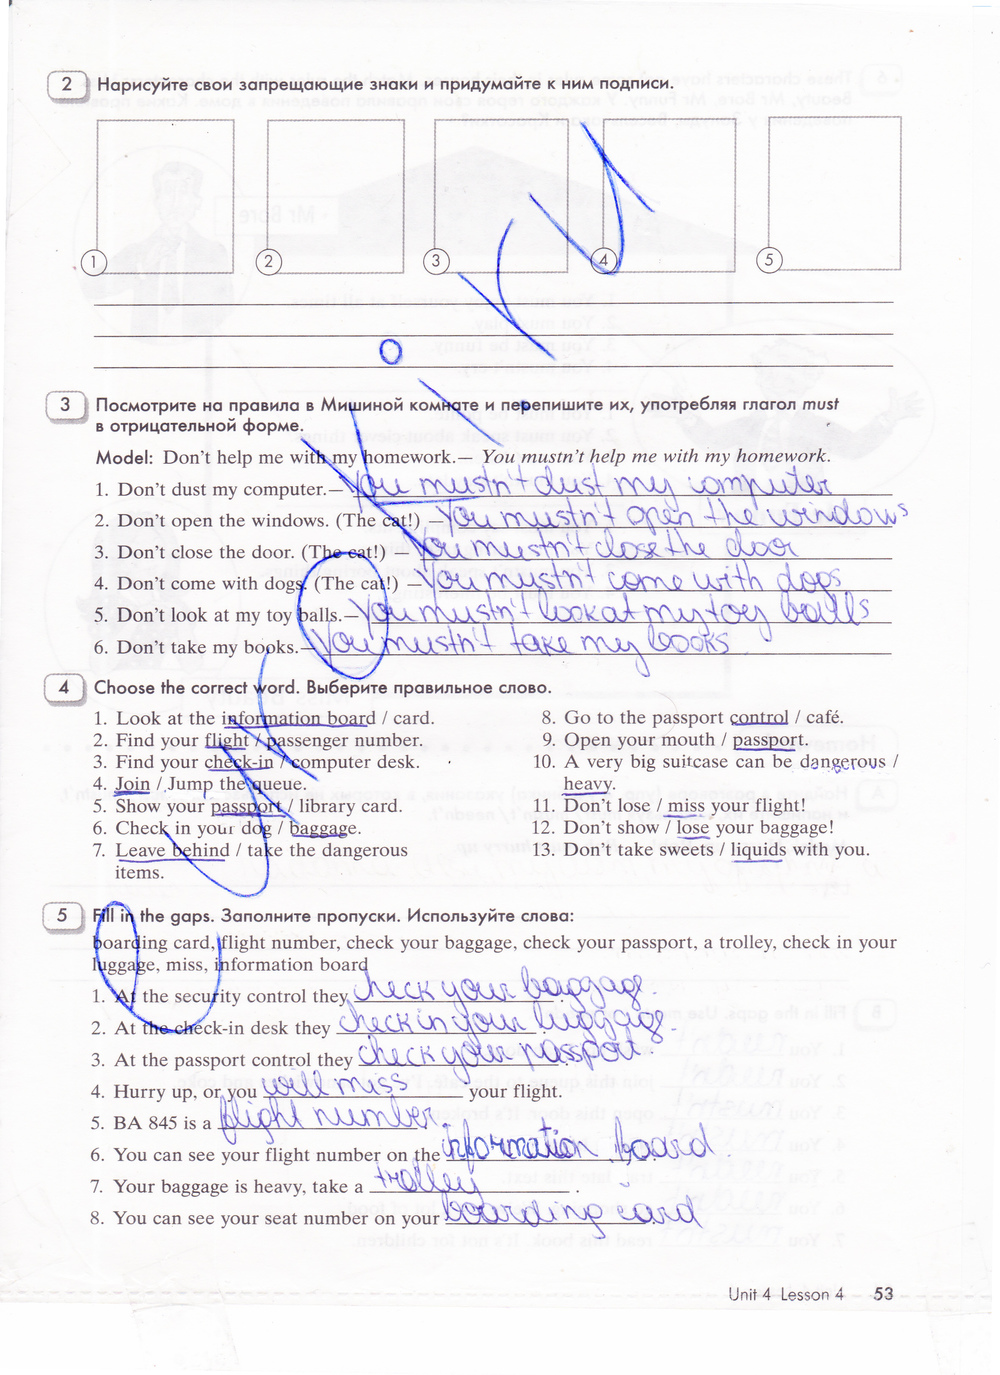 2 Нарисуйте свои запрещающие знаки и придумайте к ним подписи.
1 2 3 4 5
3 Посмотрите на правила в Мишиной комнате и перепишите их, употребляя глагол must
в отрицательной форме.
Model: Don't help me with my homework.— You mustn't help me with my homework.
1. Don't dust my computer.— You mustn't dust my computer
2. Don't open the windows. (The cat!) — You mustn't open the windows
3. Don't close the door. (The cat!) — You mustn't close the door
4. Don't come with dogs. (The cat!) — You mustn't come with dogs
5. Don't look at my toy balls.— You mustn't look at my toy balls
6. Don't take my books.— You mustn't take my books
4 Choose the correct word. Выберите правильное слово.
1. Look at the information board / card.
2. Find your flight / passenger number.
3. Find your check-in / computer desk.
4. Join / Jump the queue.
5. Show your passport / library card.
6. Check in your dog / baggage.
7. Leave behind / take the dangerous
items.
8. Go to the passport control / café.
9. Open your mouth / passport.
10. A very big suitcase can be dangerous /
heavy.
11. Don't lose / miss your flight!
12. Don't show / lose your baggage!
13. Don't take sweets / liquids with you.
5 Fill in the gaps. Заполните пропуски. Используйте слова:
boarding card, flight number, check your baggage, check your passport, a trolley, check in your
luggage, miss, information board
1. At the security control they check your baggage.
2. At the check-in desk they check in your luggage.
3. At the passport control they check your passport.
4. Hurry up, or you will miss your flight.
5. BA 845 is a flight number.
6. You can see your flight number on the information board.
7. Your baggage is heavy, take a trolley.
8. You can see your seat number on your boarding card
Unit 4 Lesson 4 53